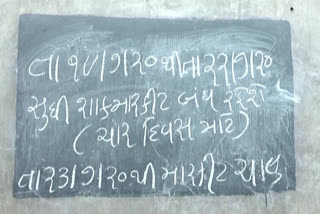 તા ૧૯/૭/૨૦ થી તા ૨૨/૭/૨૦
સુધી શાકમારકીટ બંધ રહેશે
( ચાર દિવસ માટે )
તા ૨૩/૭/૨૦ થી મારકીટ ચાલુ